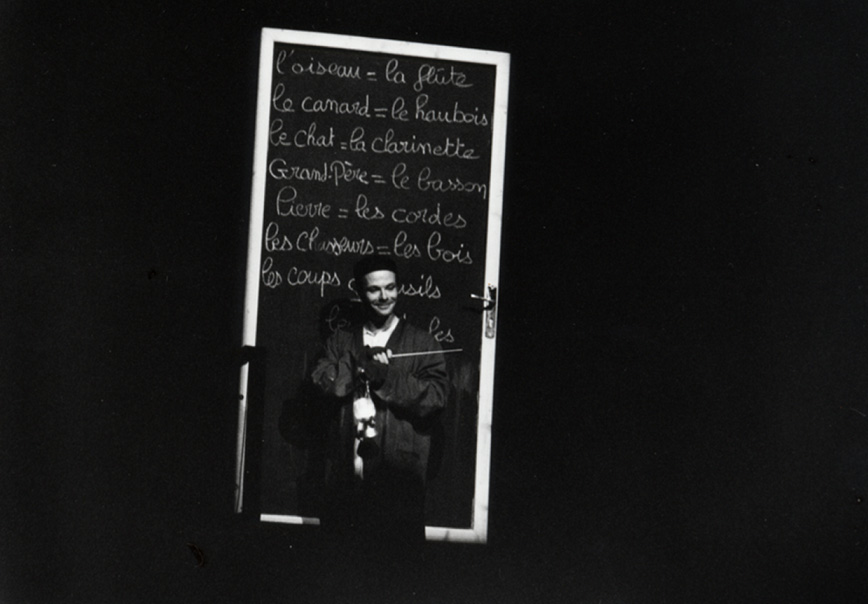 l'oiseau = la flûte
le canard = le haubois
le chat = la clarinette
Grand-Père = le basson
Pierre = les cordes
les Chasseurs = les bois
les coups
les